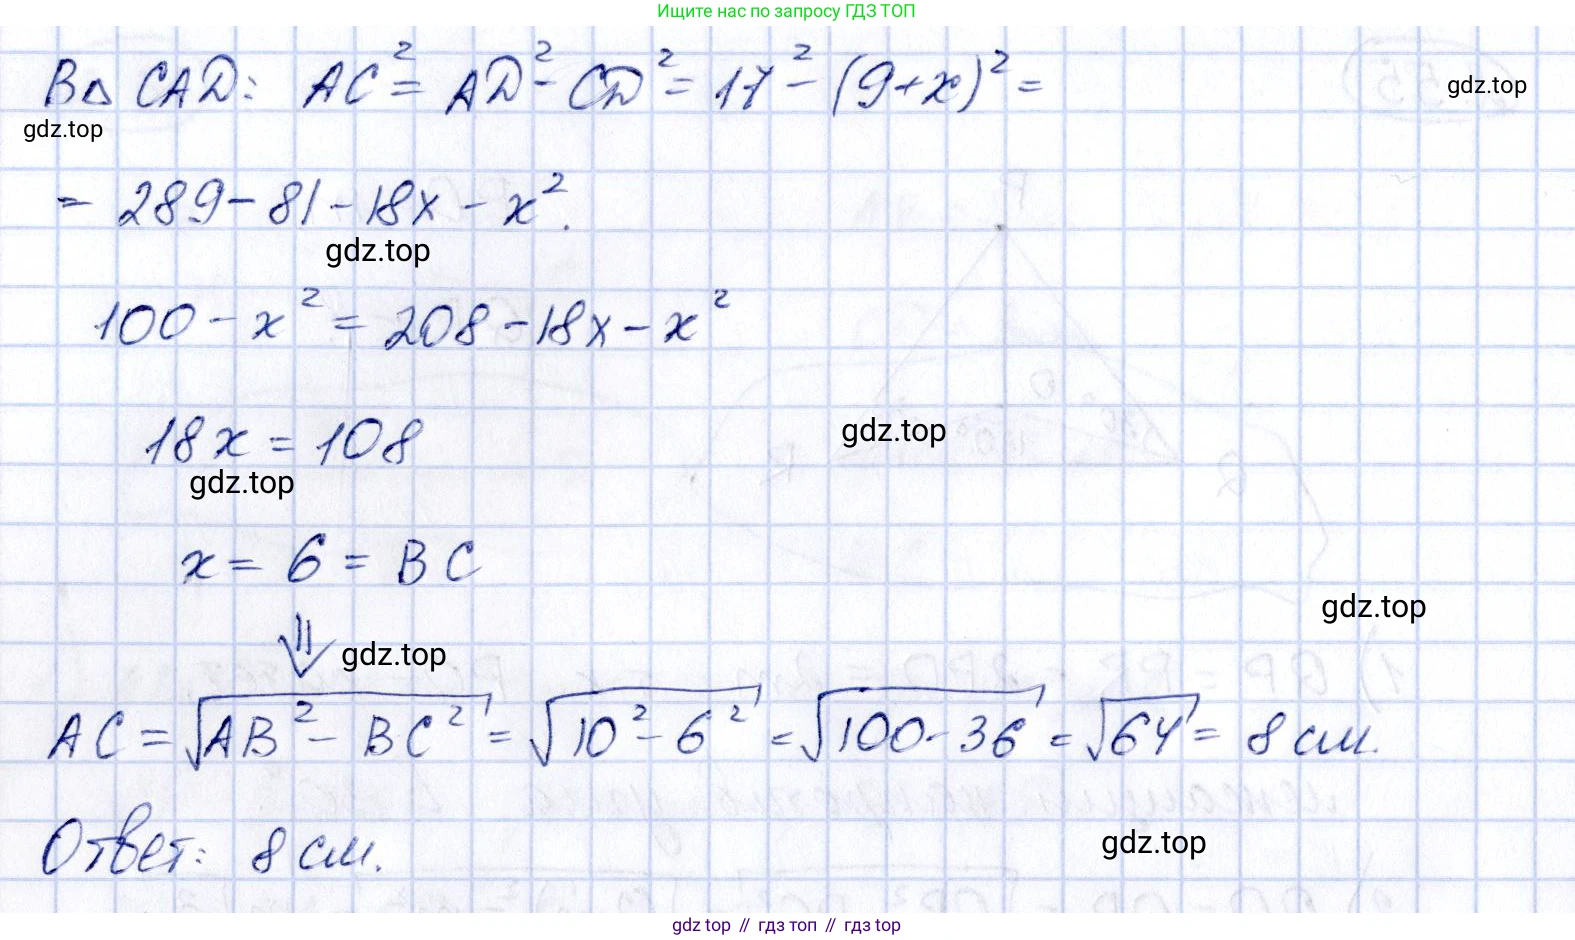 Ищите нас по запросу ГДЗ ТОП
В△ CAD: AC² = AD² - CD² = 17² - (9+x)² =
gdz.top
gdz.top
= 289 - 81 - 18x - x².
gdz.top
100 - x² = 208 - 18x - x²
18x = 108
gdz.top
gdz.top
x = 6 = BC
gdz.top
⇓
gdz.top
AC = √(AB² - BC²) = √(10² - 6²) = √(100 - 36) = √64 = 8 см.
Ответ: 8 см.
gdz.top
gdz top // гдз топ // gdz top